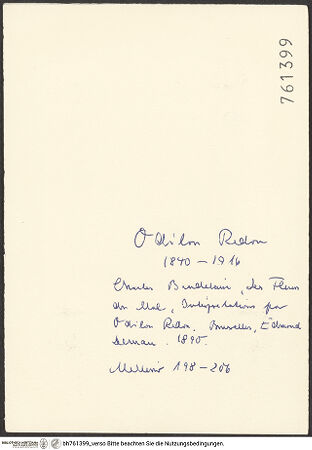 761399
Odilon Redon
1840 – 1916
Charles Baudelaire, Les Fleurs
du Mal, Interprétations par
Odilon Redon. Bruxelles, Edmond
Deman. 1890.
Mellerio 198–206
bh761399_verso Bitte beachten Sie die Nutzungsbedingungen.